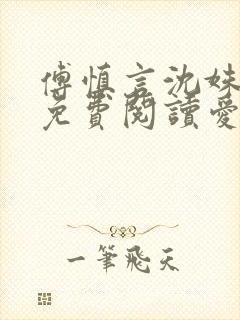 傅慎言沈妹
免費閱讀愛
一筆飛天